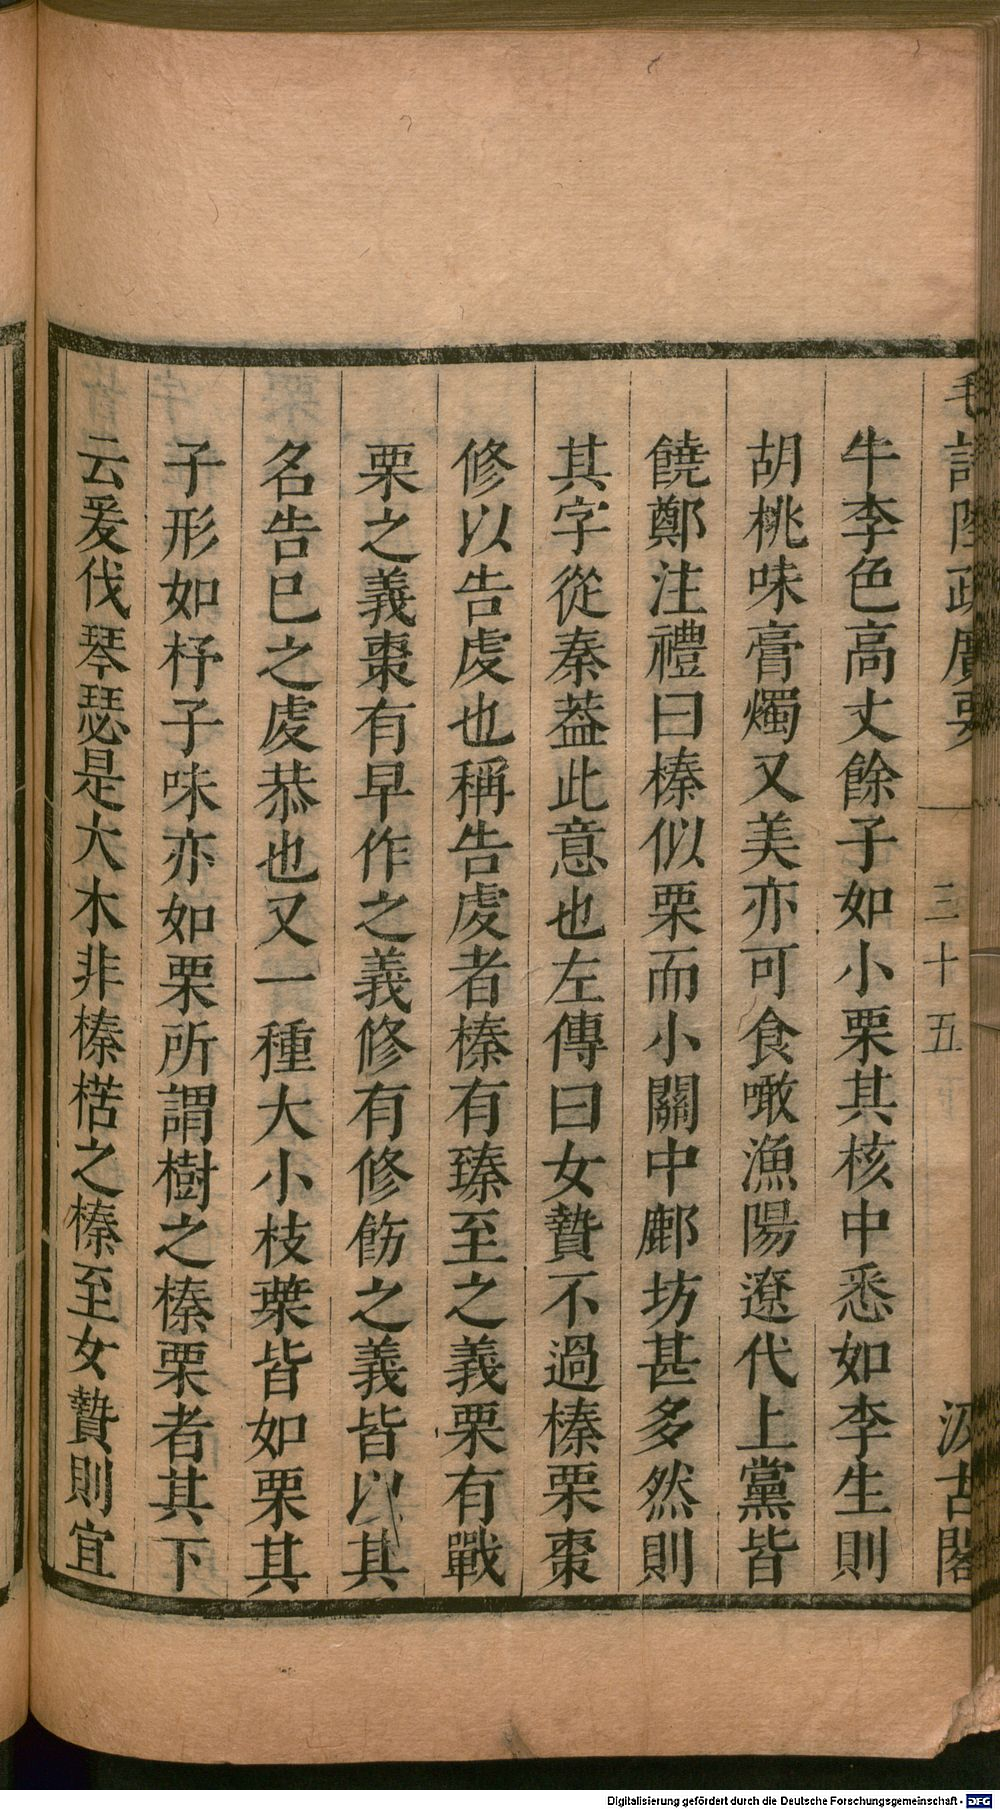 毛詩陸疏廣要 三十五 汲古閣
牛李色高丈餘子如小栗其核中悉如李生則
胡桃味膏燭又美亦可食噉漁陽遼代上黨皆
饒鄭注禮曰榛似栗而小關中鄜坊甚多然則
其字從秦葢此意也左傳曰女贄不過榛栗棗
修以告虔也稱告虔者榛有臻至之義栗有戰
栗之義棗有早作之義修有修飭之義皆以其
名告巳之虔恭也又一種大小枝葉皆如栗其
子形如杼子味亦如栗所謂樹之榛栗者其下
云爰伐琴瑟是大木非榛楛之榛至女贄則宜
Digitalisierung gefördert durch die Deutsche Forschungsgemeinschaft - DFG